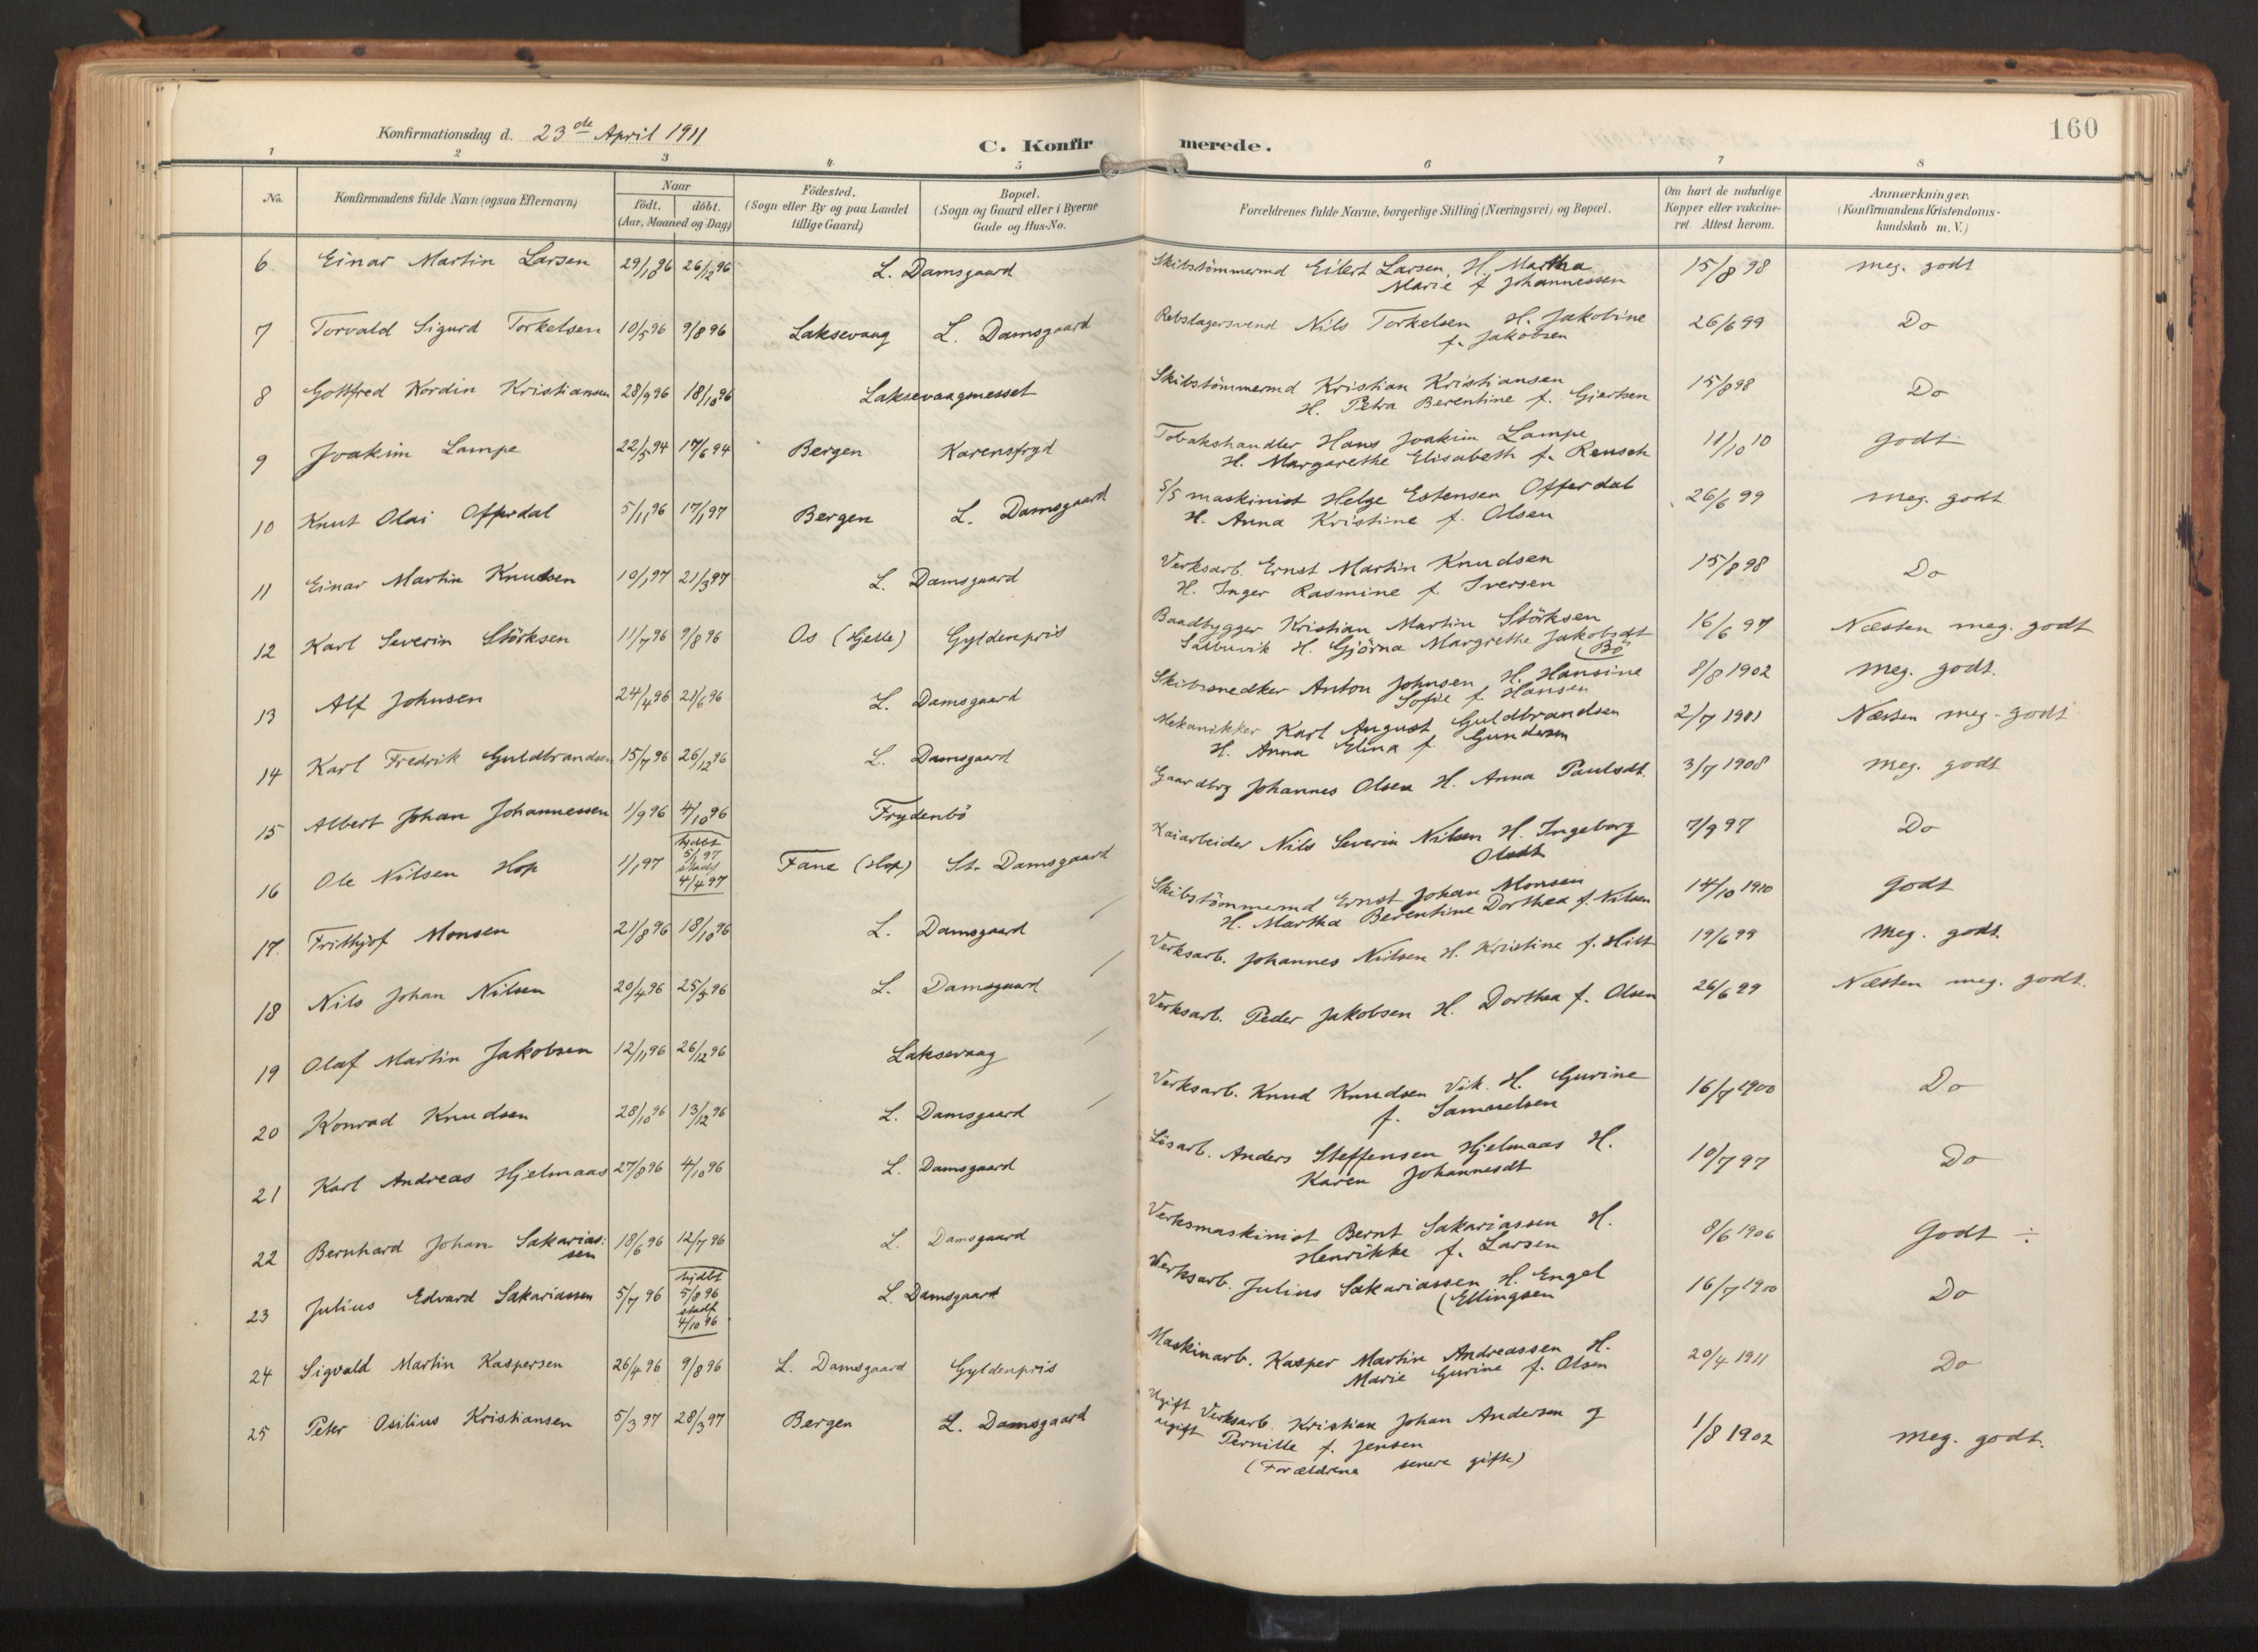 160
Konfirmationsdag d. 23de April 1911
C. Konfirmerede.
1 2 3 4 5 6 7 8
No. Konfirmandens fulde Navn (ogsaa Efternavn) Naar født. døbt. (Aar, Maaned og Dag) Födested. (Sogn eller By og paa Landet tillige Gaard) Bopæl. (Sogn og Gaard eller i Byerne Gade og Hus-No. Forældrenes fulde Navne, borgerlige Stilling (Næringsvei) og Bopæl. Om havt de naturlige Kopper eller vakcineret. Attest herom. Anmærkninger. (Konfirmandens Kristendomskundskab m. V.)
6 Einar Martin Larsen 29/10 96 26/12 96 L. Damsgaard Skibstömmermd Eilert Larsen, H. Martha Marie f Johannessen 15/8 98 meg. godt
7 Torvald Sigurd Torkelsen 10/5 96 9/8 96 Laksevaag L. Damsgaard Rebslagersvend Nils Torkelsen H. Jakobine f. Jakobsen 26/6 99 Do
8 Gottfred Nordin Kristiansen 28/9 96 18/10 96 Laksevaagnesset Skibstömmermd Kristian Kristiansen H. Petra Berentine f. Giertsen 15/8 98 Do
9 Joakim Lampe 22/5 94 17/6 94 Bergen Karensfryd Tobakshandler Hans Joakim Lampe H. Margarethe Elisabeth f. Reusch 11/10 10 godt
10 Knut Olai Offerdal 5/11 96 17/1 97 Bergen L. Damsgaard S/S maskinist Helge Estensen Offerdal H. Anna Kristine f. Olsen 26/6 99 meg. godt
11 Einar Martin Knudsen 10/1 97 21/3 97 L. Damsgaard Verksarb. Ernst Martin Knudsen H. Inger Rasmine f. Iversen 15/8 98 Do
12 Karl Severin Störksen 11/7 96 9/8 96 Os (Gjelle) Gyldenpris Baadbygger Kristian Martin Störksen H. Gjörna Margrethe Jakobsdt (Bö 16/6 97 Næsten meg. godt
13 Alf Johnsen 24/4 96 21/6 96 L. Damsgaard Skibssnedker Anton Johnsen H. Hansine Sofie f. Hansen 8/8 1902 meg. godt.
14 Karl Fredrik Guldbrandsen 15/7 96 26/12 96 L. Damsgaard Mekanikker Karl August Guldbrandsen H. Anna Elina f. Gundersen 2/7 1901 Næsten meg. godt
15 Albert Johan Johannessen 1/9 96 4/10 96 Frydenbö Gaardbrg Johannes Olsen H. Anna Paulsdt. 3/7 1908 meg. godt
16 Ole Nilsen Hop 1/1 97 hjdbt 5/1 97 stadf 4/4 97 Fane (Hop) St. Damsgaard Kaiarbeider Nils Severin Nilsen H. Ingeborg Olsdt 7/9 97 Do
17. Frithjof Monsen 21/8 96 18/10 96 L. Damsgaard Skibstömmermd Ernst Johan Monsen H. Martha Berentine Dorthea f. Nilsen 14/10 1910 godt
18 Nils Johan Nilsen 20/4 96 25/5 96 L. Damsgaard Verksarb. Johannes Nilsen H. Kristine f. Hilt 19/6 99 meg. godt.
19 Olaf Martin Jakobsen 12/11 96 26/12 96 Laksevaag Verksarb. Peder Jakobsen H. Dorthea f. Olsen 26/6 99 Næsten meg. godt.
20 Konrad Knudsen 28/10 96 13/12 96 L. Damsgaard Verksarb. Knud Knudsen Vik. H. Gurine f. Samuelsen 16/7 1900 Do
21 Karl Andreas Hjelmaas 27/8 96 4/10 96 L. Damsgaard Lösarb. Anders Steffensen Hjelmaas H. Karen Johannesdt 10/7 97 Do
22 Bernhard Johan Sakariassen 18/6 96 12/7 96 L. Damsgaard Verksmaskinist Bernt Sakariassen H. Henrikke f. Larsen 8/6 1906 Godt ÷
23 Julius Edvard Sakariassen 5/7 96 hjdbt 5/8 96 stadf 4/10 96 L. Damsgaard Verksarb. Julius Sakariassen H. Engel (Ellingsen 16/7 1900 Do
24 Sigvald Martin Kaspersen 26/4 96 9/8 96 L. Damsgaard Gyldenpris Maskinarb. Kasper Martin Andreassen H. Marie Gurine f. Olsen 20/4 1911 Do
25 Peter Osilius Kristiansen 5/3 97 28/3 97 Bergen L. Damsgaard Ugift Verksarb. Kristian Johan Andersen og ugift Pernille f. Jensen (Forældrene senere gifte) 1/8 1902 meg. godt.